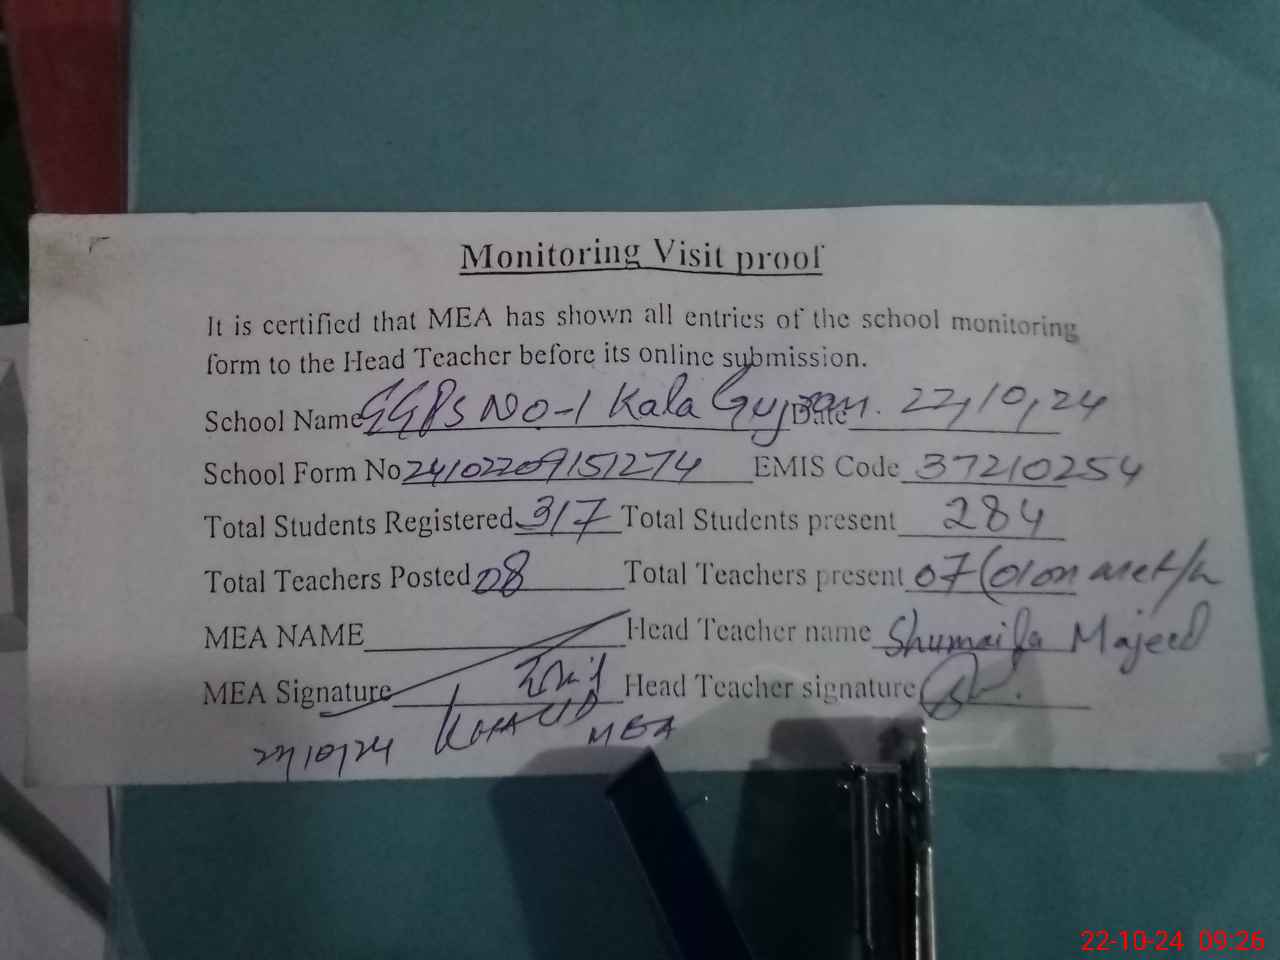 Monitoring Visit proof
It is certified that MEA has shown all entries of the school monitoring
form to the Head Teacher before its online submission.
School Name GGPS NO-1 Kala Gujran. Date 22,10,24
School Form No 24102209151274 EMIS Code 37210254
Total Students Registered 317 Total Students present 284
Total Teachers Posted 08 Total Teachers present 07 (01 on
MEA NAME Head Teacher name Shumaila Majeed
MEA Signature Head Teacher signature
22/10/24 MEA
22-10-24 09:26